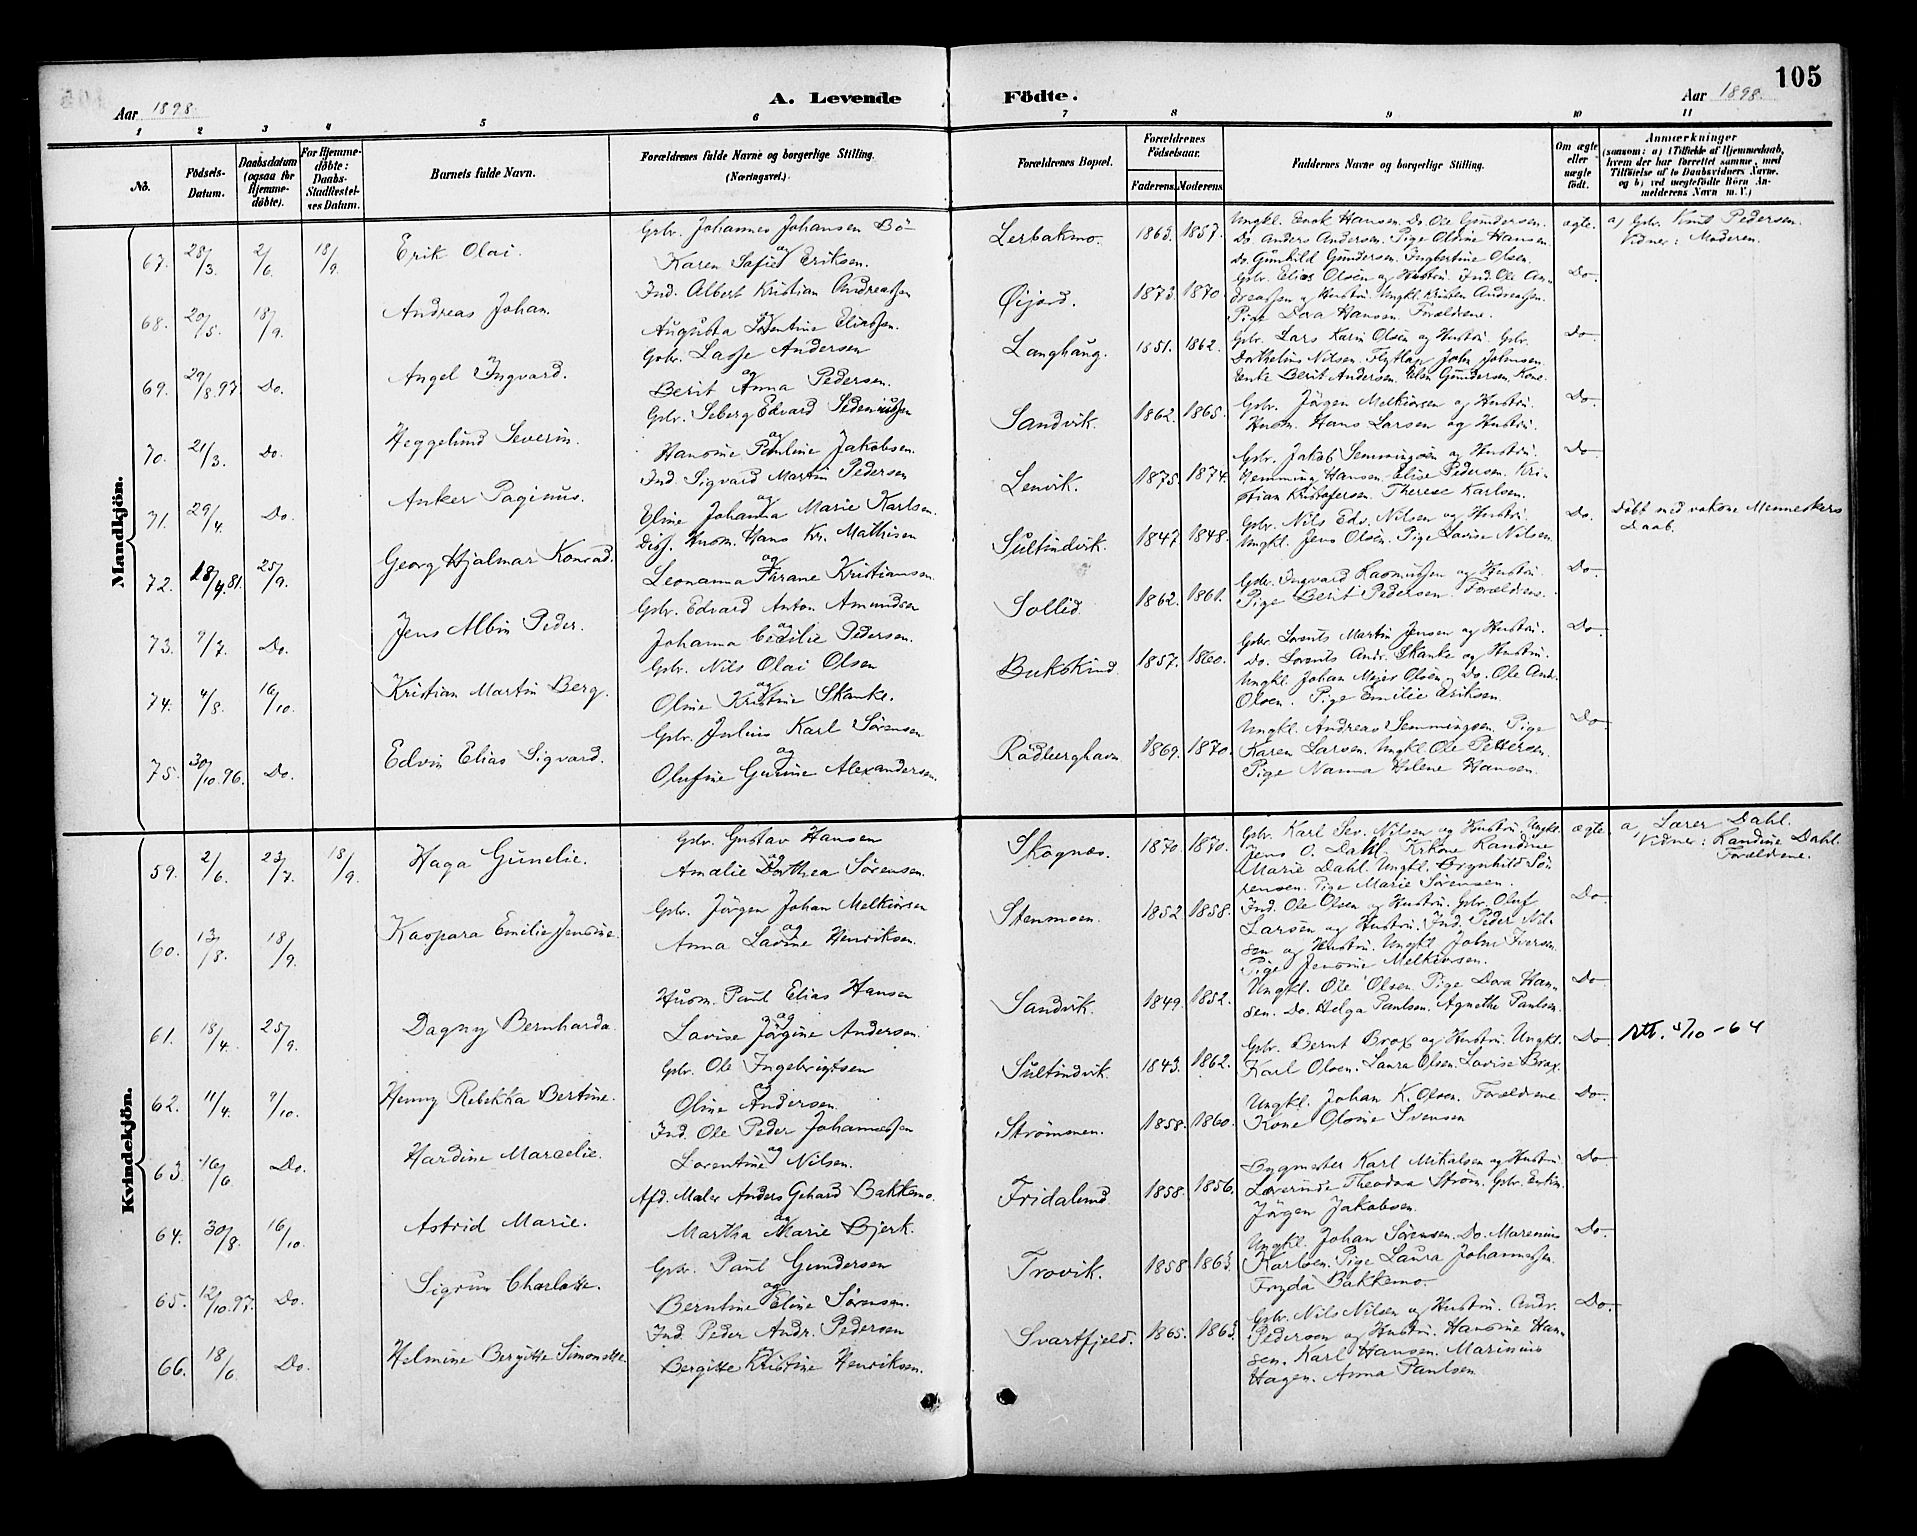 105
Aar 1898.
A. Levende
Födte.
Aar 1898.
1 2 3 4 5 6 7 8 9 10 11
No.
Födsels-
Datum.
Daabsdatum
(ogsaa for
Hjemme-
döbte).
For Hjemme-
döbte:
Daabs-
Stadfæstel-
ses Datum.
Barnets fulde Navn.
Forældrenes fulde Navne og borgerlige Stilling.
(Næringsvei.)
Forældrenes Bopæl.
Forældrenes
Födselsaar.
Faderens. Moderens.
Faddernes Navne og borgerlige Stilling.
Om ægte
eller
uægte
födt.
Anmærkninger
(saasom: a) i Tilfælde af Hjemmedaab,
hvem der har forrettet samme, med
Tilföielse af to Daabsvidners Navne,
og b) ved uægtefödte Börn An-
melderens Navn m. V.)
Mandkjön.
67. 28/3. 2/6. 18/9. Erik Olai.
Gbr. Johannes Johansen Bö
og
Karen Sofie Eriksen.
Lerbakmo. 1863. 1857.
Ungkl. Enok Hansen. Do. Ole Gundersen.
Do. Anders Andersen. Pige Oldine Hansen
Do. Gunhild Gundersen. Ingbertine Olsen.
ægte.
a) Gbr. Knut Pedersen.
Vidner: Moderen.
68. 20/5. 18/9. Andreas Johan.
Ind. Albert Kristian Andreassen
og
Augusta Lorentine Eliassen.
Öijord. 1873. 1870.
Gbr. Elias Olsen og Hustru. Ind. Ole An-
dreassen og Hustru. Ungkl. Kristen Andreassen.
Pige Dora Hansen. Forældrene.
Do
69. 29/8.97. Do. Angel Ingvard.
Gbr. Lasse Andersen
og
Berit Anna Pedersen.
Langhaug. 1851. 1862.
Gbr. Lars Karin Olsen og Hustru. Gbr.
Dorthelius Nilsen. Flytlap John Johnsen.
Enke Berit Andersen. Elen Gundersen Kone.
Do
70. 21/3. Do. Heggelund Severin.
Gbr. Seberg Edvard Pedersen
og
Hansine Pauline Jakobsen.
Sandvik. 1862. 1865.
Gbr. Jörgen Melkiorsen og Hustru.
Husm. Hans Larsen og Hustru.
Do.
71. 29/4. Do. Anker Paginus.
Ind. Sigvard Martin Pedersen
og
Eline Johanna Marie Karlsen.
Lenvik. 1875. 1874.
Gbr. Jakob Semmingsen og Hustru.
Hemming Hansen. Elise Pedersen. Kri-
stian Kristofersen. Therese Karlsen.
Do
72. 18/9.81. 25/9. Georg Hjalmar Konrad.
Diss. Husm. Hans Kr. Mathisen
og
Leonanna Thrane Kristiansen
Sultindvik. 1847. 1848.
Gbr. Nils Edv. Nilsen og Hustru.
Ungkl. Jens Olsen. Pige Lovise Nilsen.
Do.
Döbt med voksne Menneskers
Daab.
73. 7/7. Do. Jens Albin Peder.
Gbr. Edvard Anton Amundsen
og
Johanna Cecilie Pedersen.
Sollid. 1862. 1861.
Gbr. Ingvard Rasmussen og Hustru.
Pige Berit Pedersen. Forældrene.
Do
74. 4/8. 16/10. Kristian Martin Berg.
Gbr. Nils Olai Olsen
og
Oline Kristine Skanke.
Bukskind. 1857. 1860.
Gbr. Lorents Martin Jensen og Hustru.
Do. Lorents Andr. Skanke og Hustru.
Ungkl. Johan Mejer Olsen, Do. Ole And.
Olsen. Pige Emilie Eriksen.
Do
75. 30/10.96. Do. Edvin Elias Sigvard.
Gbr. Julius Karl Sörensen
og
Olufine Gurine Alexandersen.
Rödberghavn 1869. 1870.
Ungkl. Andreas Semmingsen. Pige
Karen Larsen. Ungkl. Ole Pettersen.
Pige Nanna Helene Hansen.
Do
Kvindekjön.
59. 2/6. 23/7. 18/9. Haga Gunelie.
Gbr. Gustav Hansen
og
Amalie Dorthea Sörensen.
Skognæs. 1870. 1870.
Gbr. Karl Sev. Nilsen og Hustru. Ungkl.
Jens O. Dahl. Krkone Randine
Marie Dahl. Ungkl. Brynhild Sö-
rensen. Pige Marie Sörensen.
ægte
a) Lærer Dahl.
Vidner: Randine Dahl.
Forældrene.
60. 13/8. 18/9. Kaspara Emilie Jensine.
Gbr. Jörgen Johan Melkiorsen
og
Anna Lavine Henriksen.
Stenmoen. 1852 1858.
Ind. Ole Olsen og Hustru. Gbr. Oluf
Larsen og Hustru. Ind. Peder Nil-
sen og Hustru. Ungkl. John Iversen.
Pige Jensine Melkiorsen.
Do
61. 18/4. 25/9. Dagny Bernharda.
Husm. Paul Elias Hansen
og
Lovise Jörgine Andersen.
Sandvik. 1849. 1852.
Ungkl. Ole Olsen. Pige Dora Han-
sen. Do. Helga Paulsen. Agnethe Paulsen.
Do
Att. 5/10-64
62. 11/4. 9/10. Henny Rebekka Bertine.
Gbr. Ole Ingebrigtsen
og
Oline Andersen.
Sultindvik. 1843. 1862.
Gbr. Bernt Brox og Hustru. Ungkl.
Karl Olsen. Laura Olsen. Lovise Brox.
Do
63. 16/6 Do. Hardine Marcelie.
Ind. Ole Peder Johannessen
og
Lorentine Nilsen.
Strömmen. 1858. 1860.
Ungkl. Johan K. Olsen. Forældrene
Kone Olonie Svensen
Do
64. 30/8. 16/10. Astrid Marie.
Afd. Maler Anders Gehard Bakkemo.
og
Martha Marie Bjerk.
Fridalund 1858. 1856.
Bygmester Karl Mikalsen og Hustru.
Theodora Ström. Gbr.
Jörgen Jakobsen.
Do
65. 12/10.97. Do. Sigrun Charlotte.
Gbr. Paul Gundersen
og
Berntine Eline Sörensen.
Trovik. 1858 1863.
Ungkl. Johan Sörensen. Do. Marenius
Karlsen. Pige Laura Johannessen.
Fryda Bakkemo.
Do
66. 18/6 Do. Helmine Bergitte Simonette.
Ind. Peder Andr. Pedersen
og
Bergitte Kristine Henriksen.
Svartfjeld. 1865. 1863.
Gbr. Nils Nilsen og Hustru. Andr.
Pedersen og Hustru. Hansine Han-
sen. Karl Hansen. Marinius
Hagen. Anna Paulsen
Do